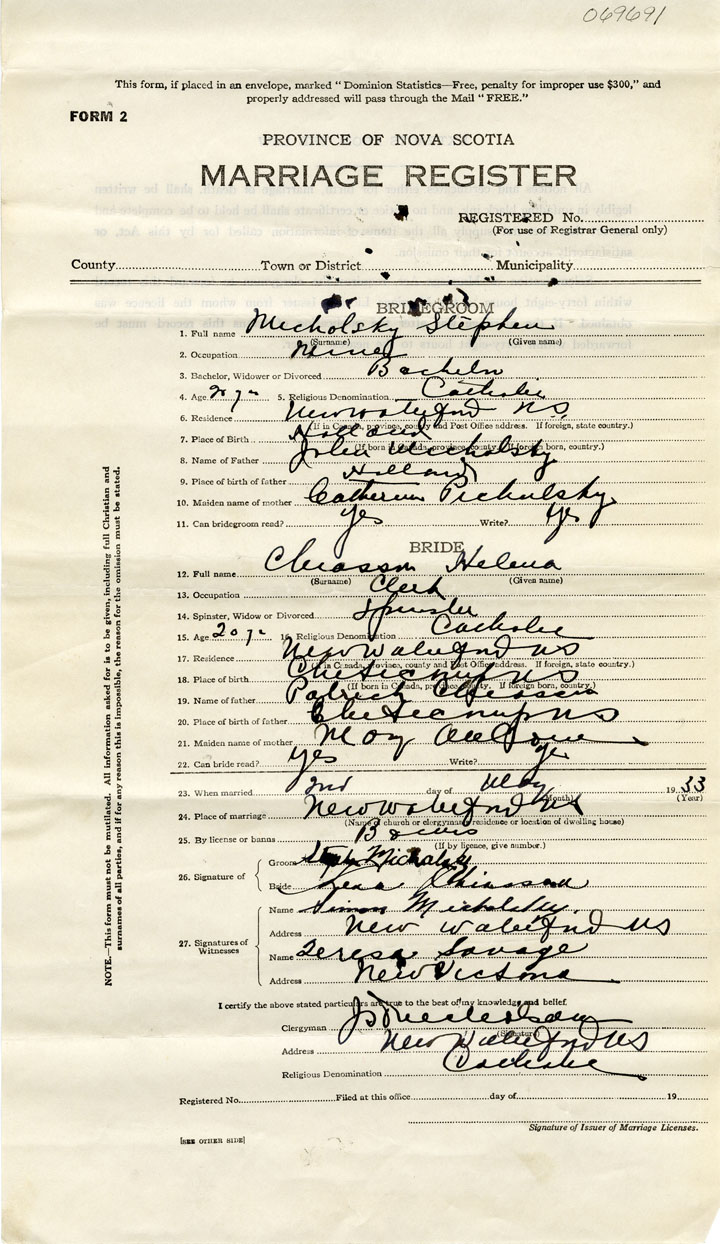 069691
This form, if placed in an envelope, marked "Dominion Statistics—Free, penalty for improper use $300," and
properly addressed will pass through the Mail "FREE."
FORM 2
PROVINCE OF NOVA SCOTIA
MARRIAGE REGISTER
REGISTERED No.
(For use of Registrar General only)
County Town or District Municipality
BRIDEGROOM
1. Full name Micholsky Stephen
(Surname) (Given name)
2. Occupation Miner
3. Bachelor, Widower or Divorced Bachelor
4. Age 5. Religious Denomination Catholic
6. Residence New Waterford N.S.
(If in Canada, province, county and Post Office address. If foreign, state country.)
7. Place of Birth Holland
(If born in Canada, province, county. If foreign born, country.)
8. Name of Father Micholsky
9. Place of birth of father Holland
10. Maiden name of mother Catherine Picholsky
11. Can bridegroom read? Yes Write? Yes
BRIDE
12. Full name Chiasson Helena
(Surname) (Given name)
13. Occupation Clerk
14. Spinster, Widow or Divorced Spinster
15. Age 20 16. Religious Denomination Catholic
17. Residence New Waterford NS
(If in Canada, province, county and Post Office address. If foreign, state country.)
18. Place of birth Cheticamp NS
(If born in Canada, province, county. If foreign born, country.)
19. Name of father Patrick Chiasson
20. Place of birth of father Cheticamp NS
21. Maiden name of mother May
22. Can bride read? Yes Write? Yes
23. When married 2nd day of May 1933
(Month) (Year)
24. Place of marriage New Waterford NS
(Name of church or clergyman's residence or location of dwelling house)
25. By license or banns Banns
(If by licence, give number.)
26. Signature of Groom Micholsky
Bride Lena Chiasson
27. Signatures of Witnesses
Name Simon Micholsky
Address New Waterford NS
Name Teresa Savage
Address New Victoria
I certify the above stated particulars are true to the best of my knowledge and belief.
Clergyman
(Signature)
Address New Waterford NS
Religious Denomination Catholic
Registered No. Filed at this office day of 19
Signature of Issuer of Marriage Licenses.
[SEE OTHER SIDE]
NOTE.—This form must not be mutilated. All information asked for is to be given, including full Christian and
surnames of all parties, and if for any reason this is impossible, the reason for the omission must be stated.